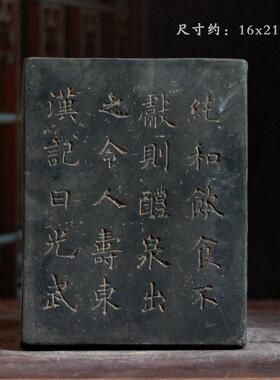 尺寸约：16x21
純和飲食不
獻則醴泉出
之令人壽東
漢記曰光武